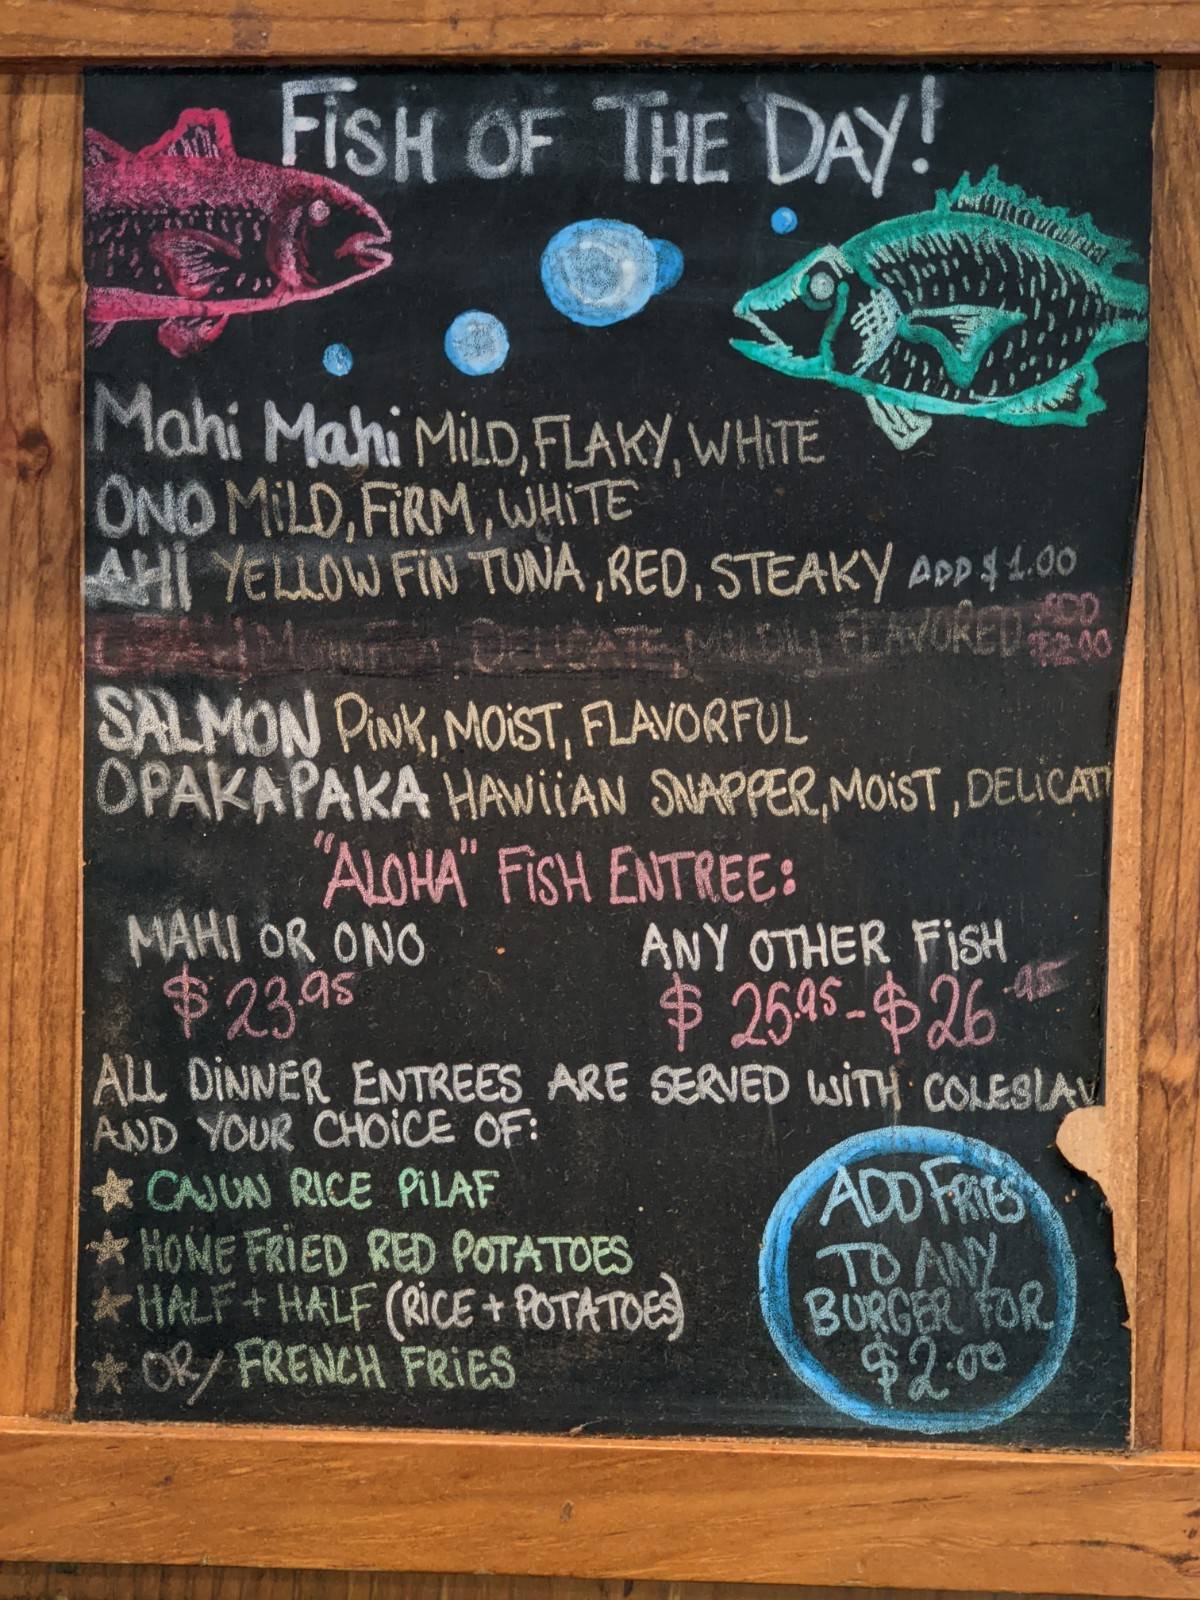 FISH OF THE DAY!
Mahi Mahi MILD, FLAKY, WHITE
ONO MILD, FIRM, WHITE
AHI YELLOW FIN TUNA, RED, STEAKY ADD $1.00
DELICATE, MILDLY FLAVORED ADD $2.00
SALMON PINK, MOIST, FLAVORFUL
OPAKAPAKA HAWIIAN SNAPPER, MOIST, DELICAT
"ALOHA" FISH ENTREE:
MAHI OR ONO
$23.95
ANY OTHER FISH
$25.95-$26.95
ALL DINNER ENTREES ARE SERVED WITH COLESLAW
AND YOUR CHOICE OF:
CAJUN RICE PILAF
HOME FRIED RED POTATOES
HALF + HALF (RICE + POTATOES)
OR/ FRENCH FRIES
ADD FRIES
TO ANY
BURGER FOR
$2.00